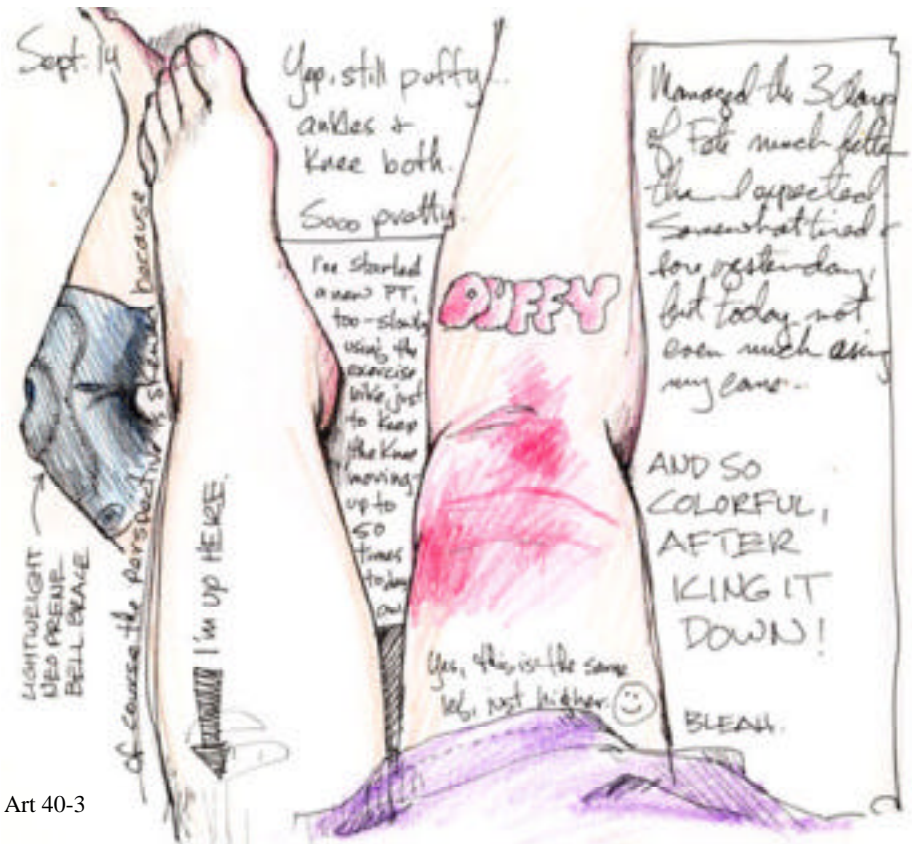 Sept. 14
Yep, still puffy...
ankles +
knee both.
Sooo pretty.
I've started
a new PT,
too - slowly
using the
exercise
bike, just
to keep
the knee
moving -
up to
50
times
today
ow
PUFFY
Managed the 3 days
of Fete much better
than I expected
Somewhat tired &
sore yesterday,
but today not
even much using
my cane...
AND SO
COLORFUL,
AFTER
ICING IT
DOWN!
BLEAH.
Yes, this is the same
leg, just higher.
of course the perspective is skewed because
I'm up HERE.
LIGHTWEIGHT
NEOPRENE
BELL BRACE
Art 40-3